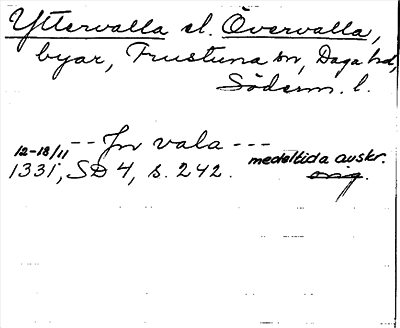 Yttervalla el. Övervalla,
byar, Frustuna sn, Daga hd,
Söderm. l.
-- Jn vala ---
12-18/11 medeltida avskr.
1331, SD 4, s. 242. orig.